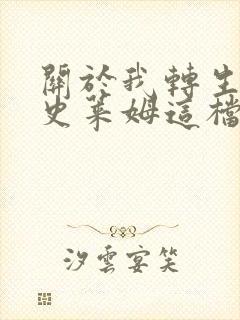 關於我轉生
史萊姆這檔
汐雲宴笑